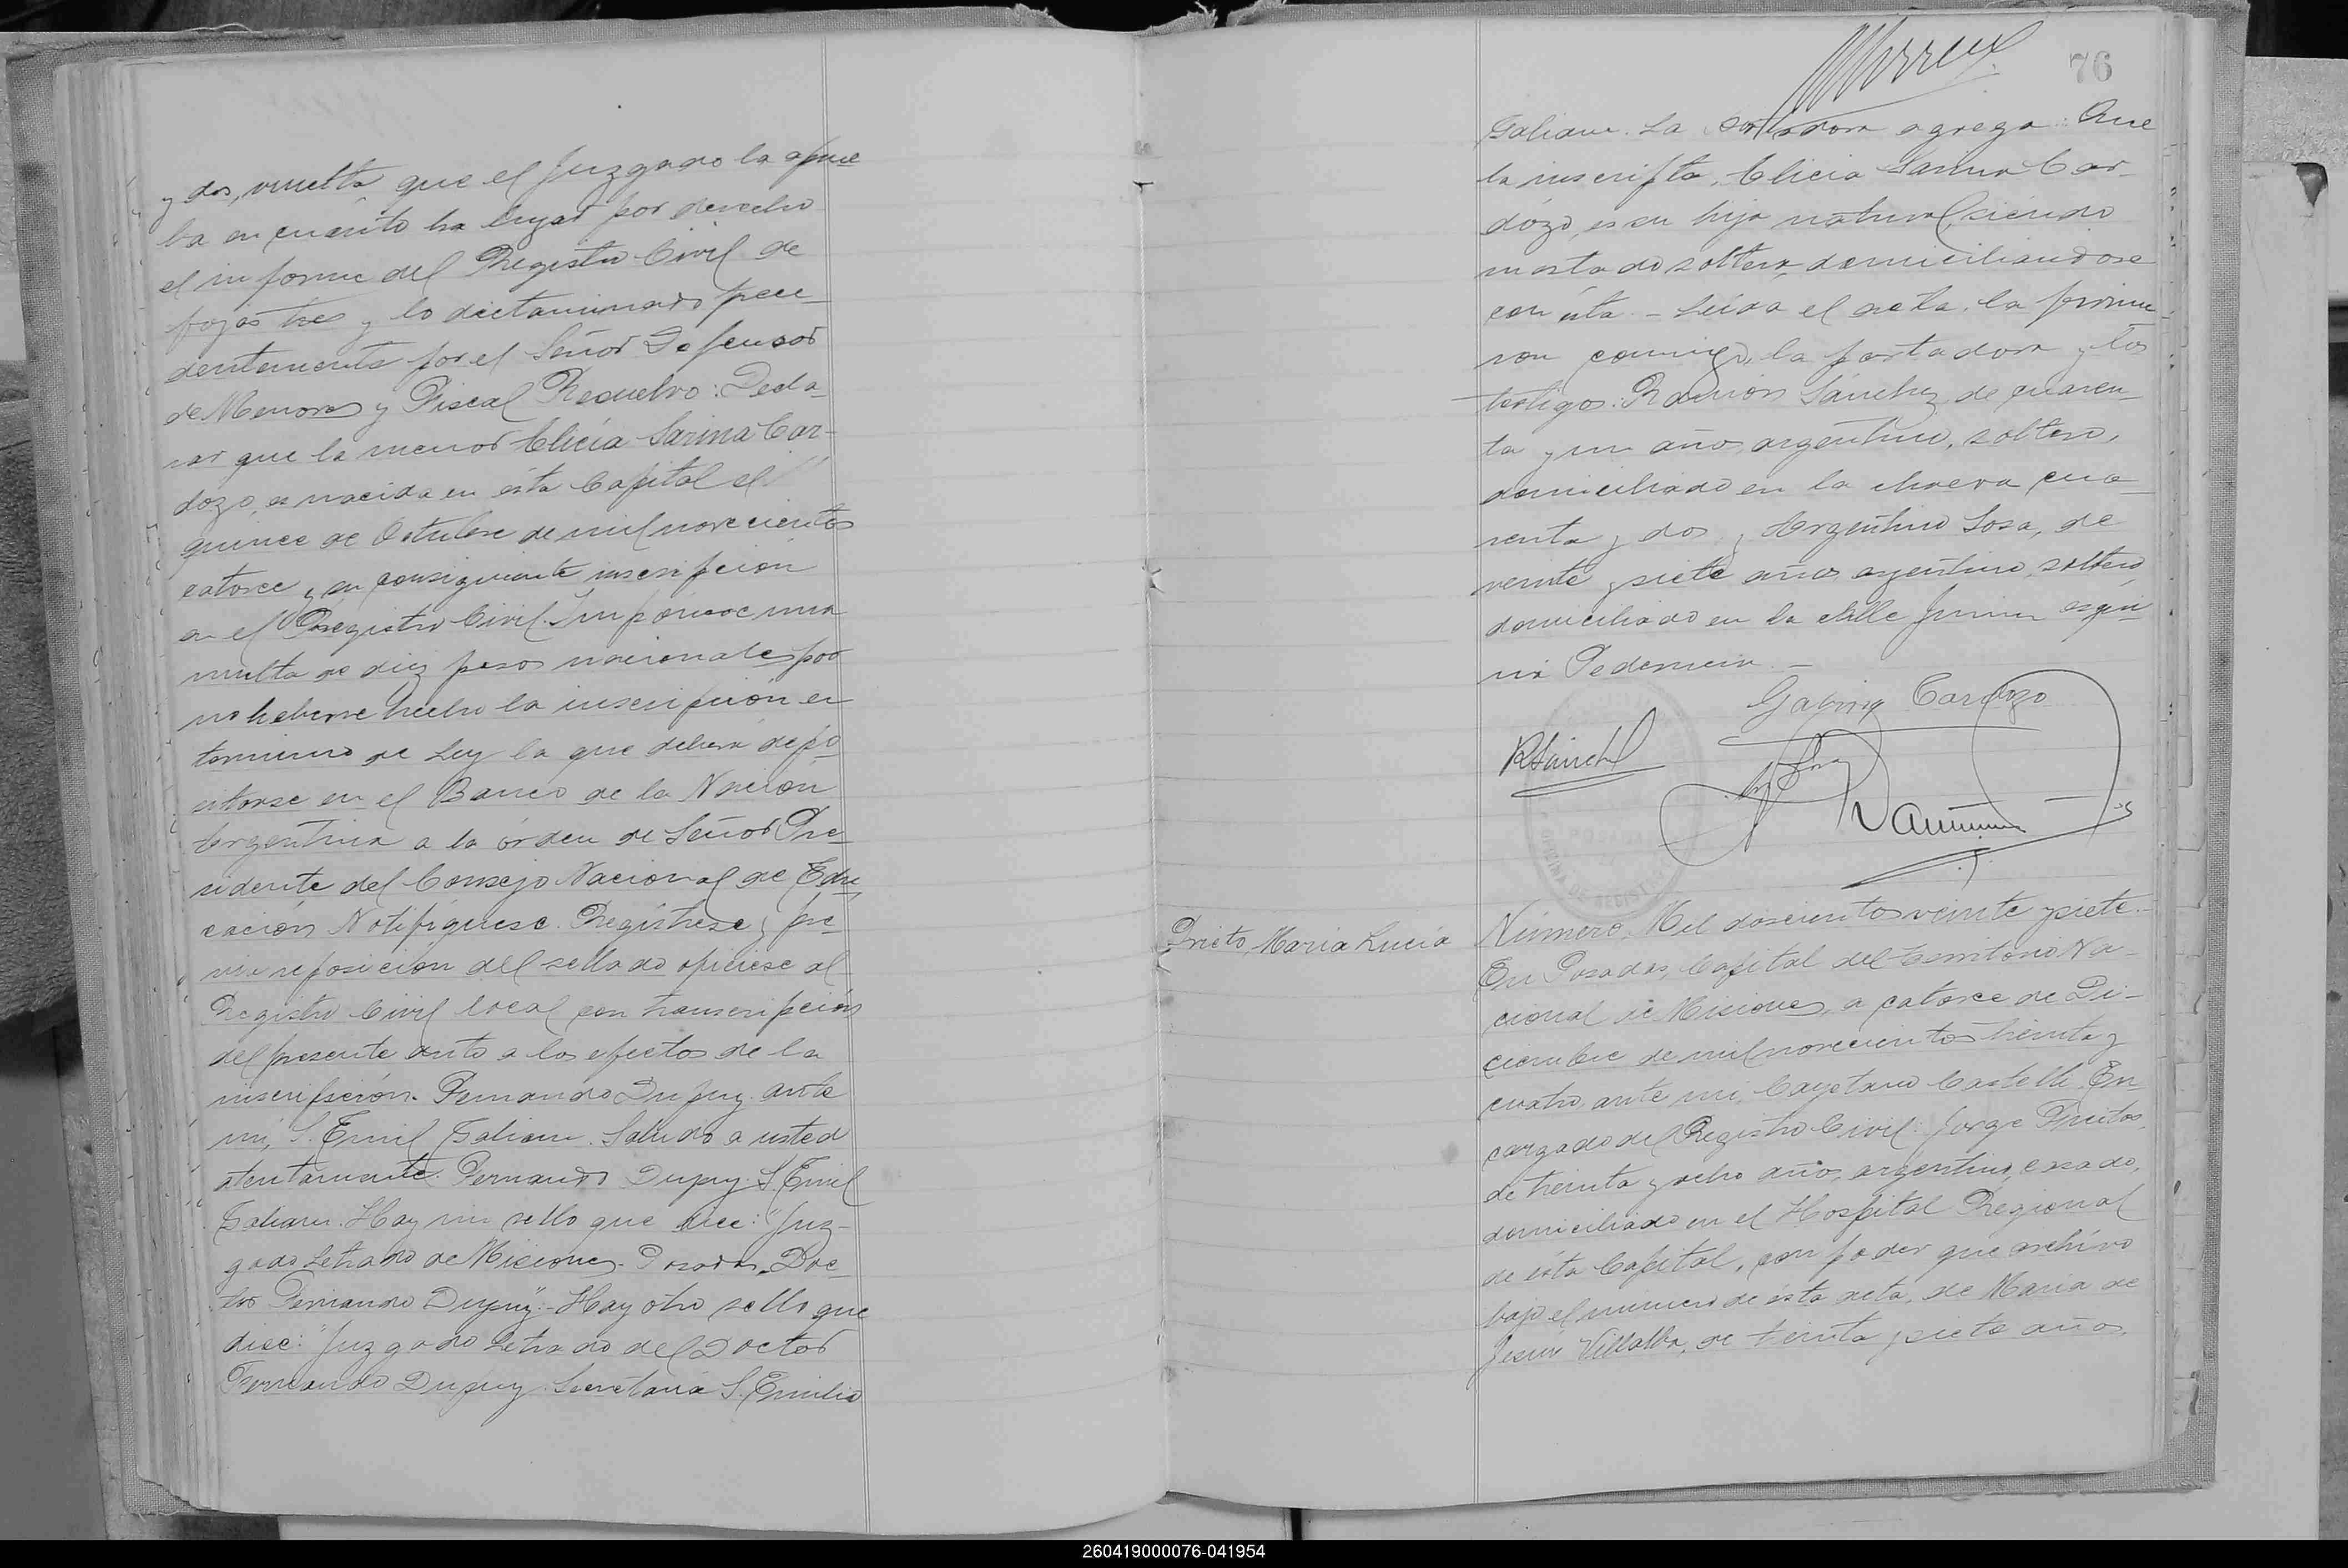 y dos, vuelta que el Juzgado la aprue
ba en cuanto ha lugar por derecho
el informe del Registro Civil de
fojas tres y lo dictaminado prece
dentemente por el Señor Defensor
de Menores y Fiscal Resuelvo: Decla
rar que la menor Clicia Sarina Car-
dozo, es nacida en ésta Capital el
quince de Octubre de mil novecientos
catorce y su consiguiente inscripción
en el Registro Civil. Impónese una
multa de diez pesos nacionales por
no haberse hecho la inscripción en
termino de Ley la que deberá depo
sitarse en el Banco de la Nación
Argentina a la órden de Señor Pre
sidente del Consejo Nacional de Edu
cación Notifíquese. Regístrese y pre
via reposición del sellado ofíciese al
Registro Civil local con transcripción
del presente auto a los efectos de la
inscripción. Fernando Dupuy. ante
mi, S. Emil Galiano. Saludo a usted
atentamente. Fernando Dupuy. S. Emil
Galiano. Hay un sello que dice: "Juz-
gado Letrado de Misiones. Posadas. Doc
tor Fernando Dupuy".- Hay otro sello que
dice: "Juzgado Letrado del Doctor
Fernando Dupuy. Secretaria S. Emilio
76
Galiano. La agrega: Que
la inscripta, Clicia Sarina Car-
dozo, es su hija natural, siendo
su estado soltera, domiciliandose
con ésta. - Leída el acta, la firma
ron conmigo, la portadora y los
testigos: Ramón Sánchez, de cuaren
ta y un años, argentino, soltero,
domiciliado en la chacra cua
renta y dos, y Argentino Sosa, de
veinte y siete años, argentino, soltero,
domiciliado en la calle Junin esqui
na Federación. -
Cardozo
RSánchez
Prieto, Maria Lucía
Número, Mil doscientos veinte y siete.-
En Posadas, Capital del territorio Na-
cional de Misiones, a catorce de Di-
ciembre de mil novecientos treinta y
cuatro, ante mi, Cayetano Castelli En
cargado del Registro Civil: Jorge Fruitos,
de treinta y ocho años, argentino, casado,
domiciliado en el Hospital Regional
de ésta Capital, con poder que archivo
bajo el número de ésta acta, de Maria de
Jesús Villalba, de treinta y siete años,